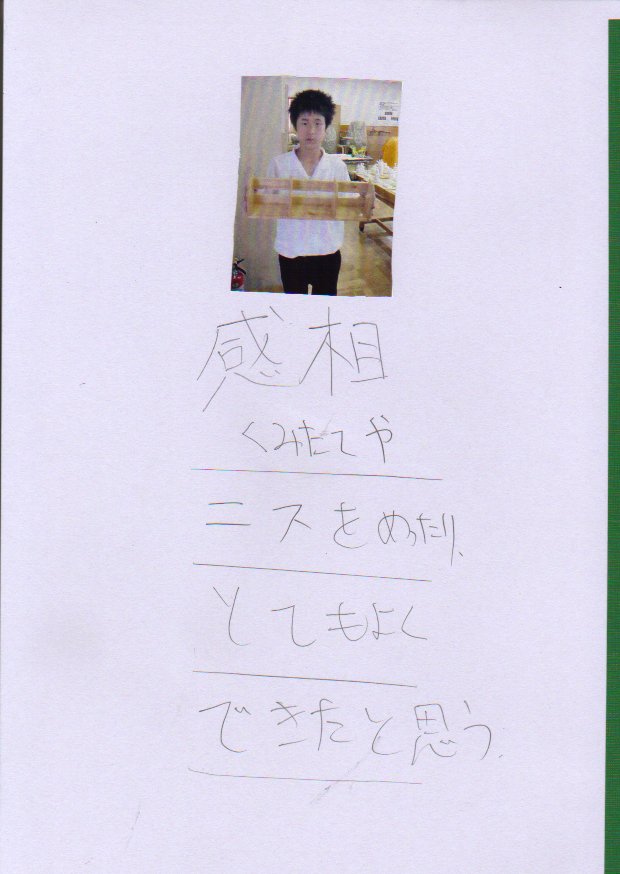 感相
くみたてや
ニスをぬったり、
とてもよく
できたと思う.